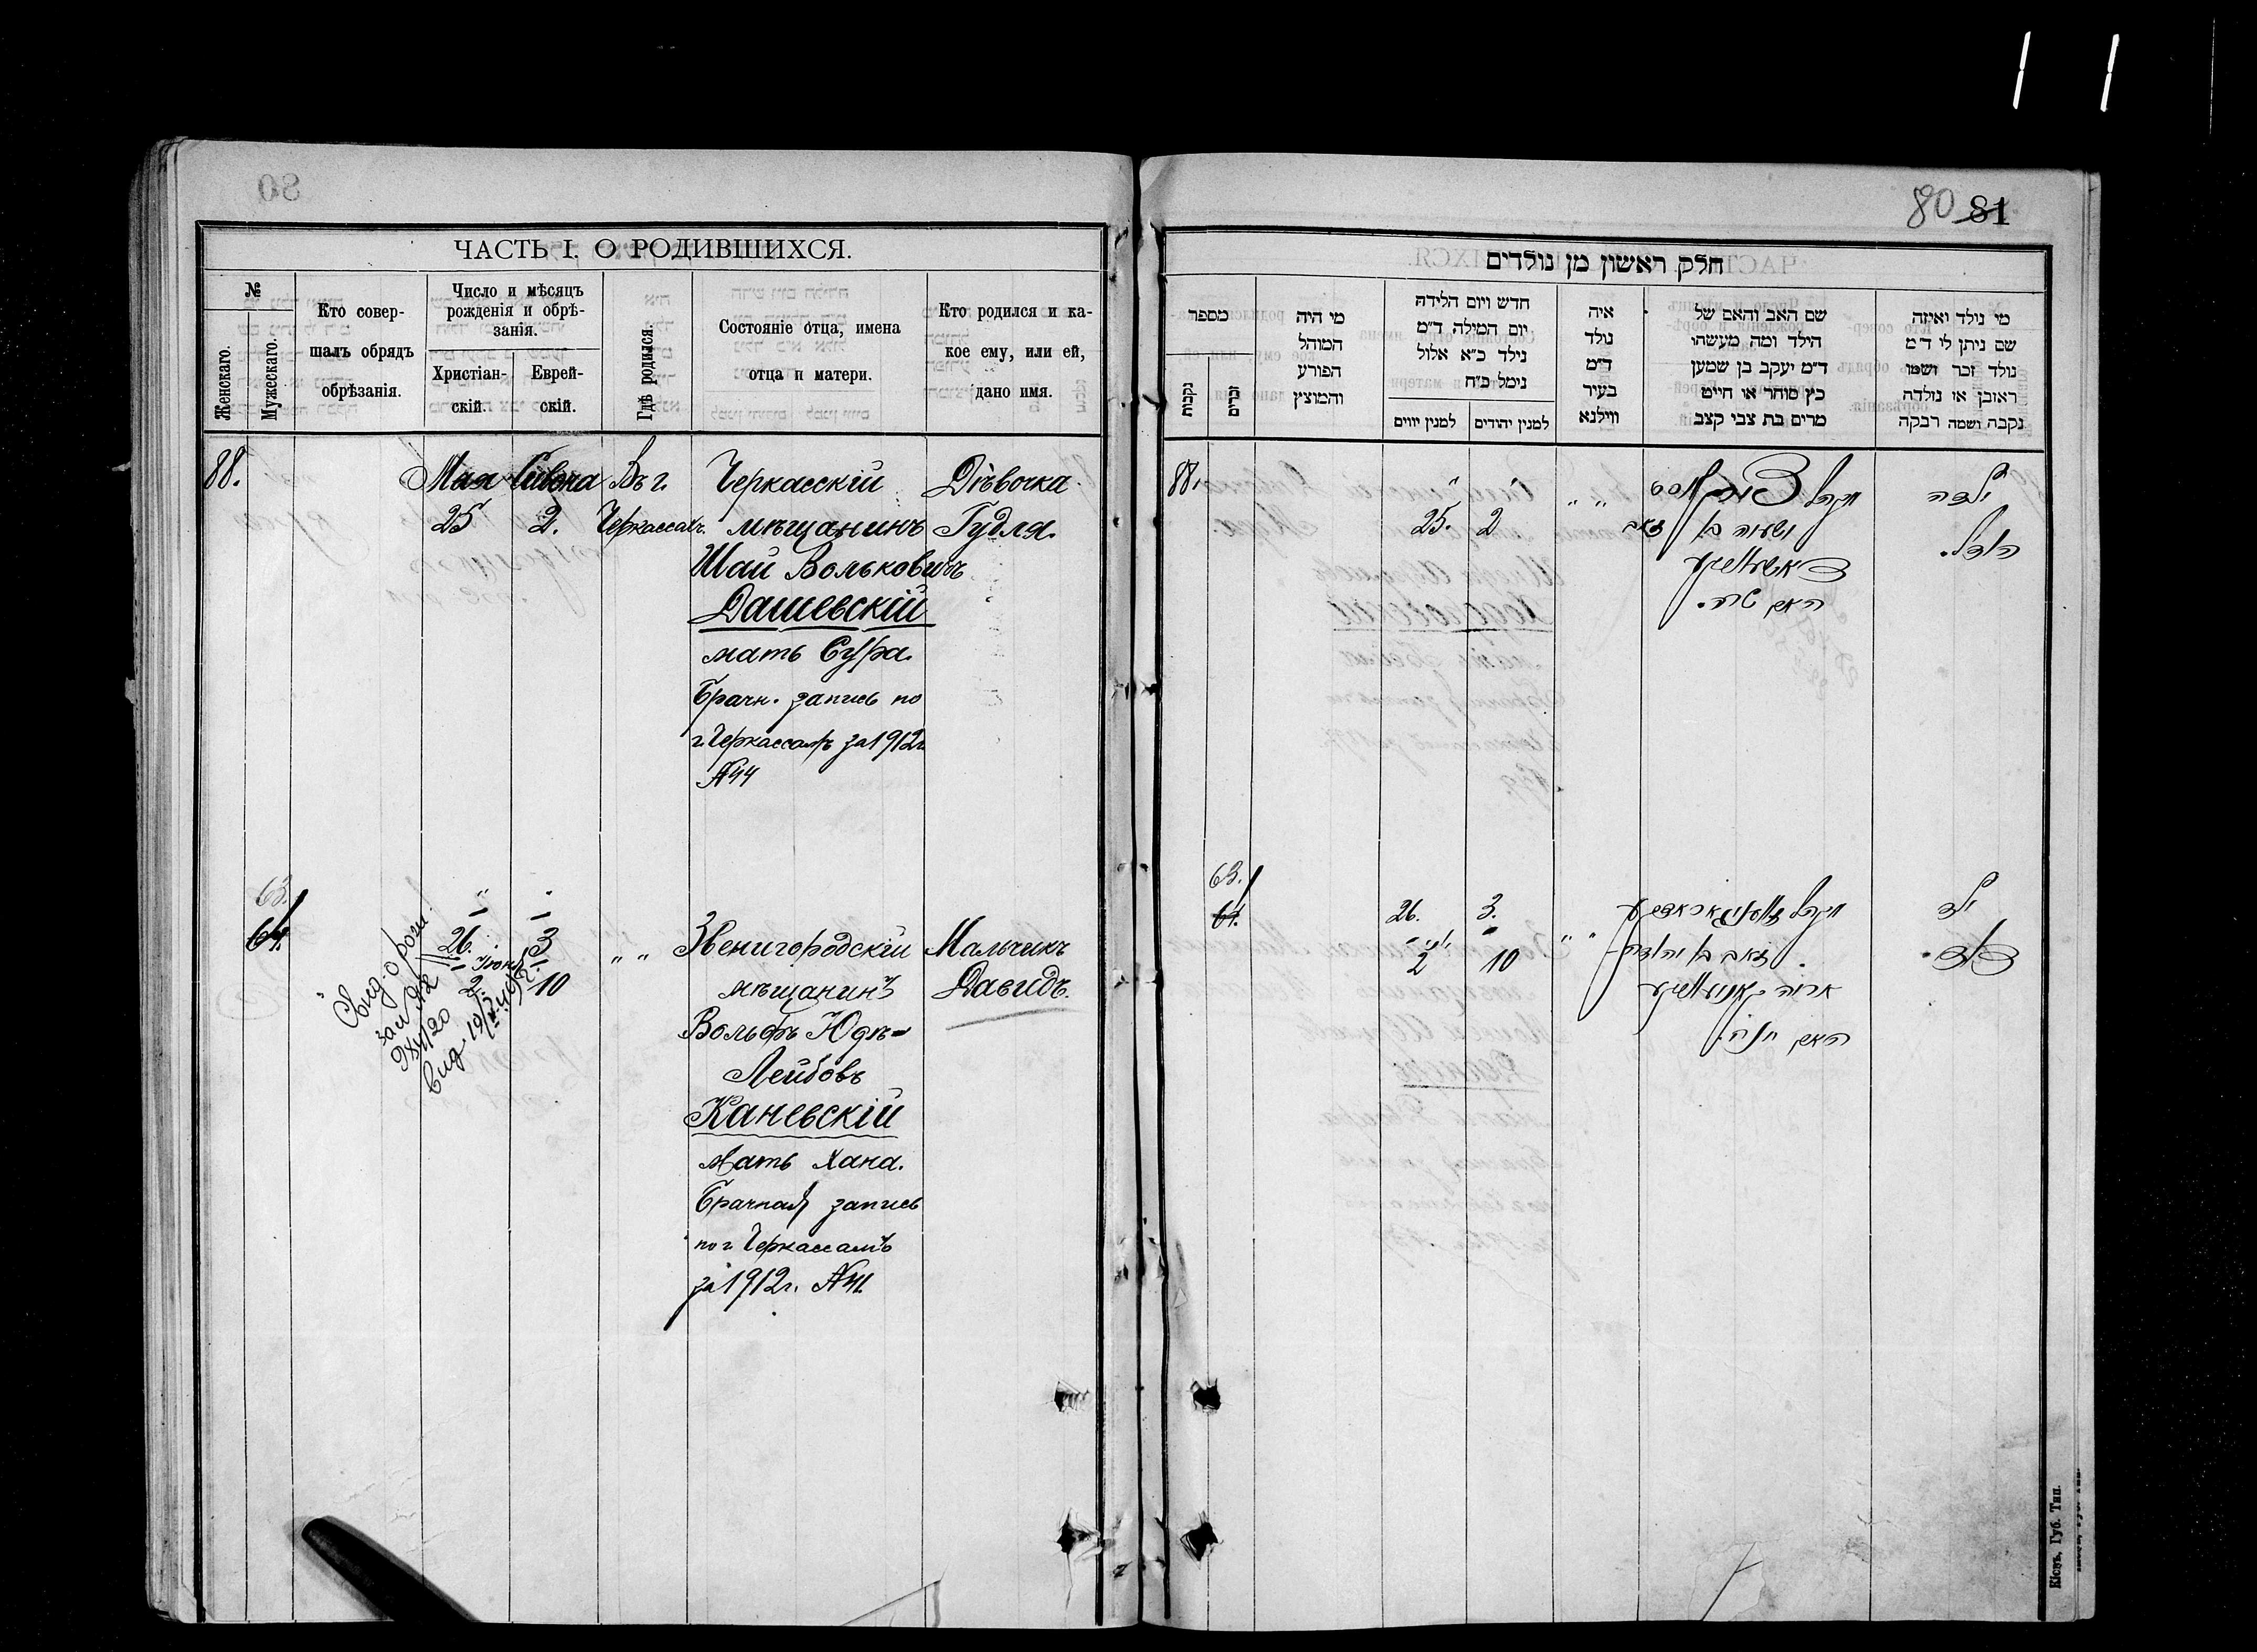 80 81
ЧАСТЬ I. О РОДИВШИХСЯ.
№
Женскаго.
Мужескаго.
Кто совер-
шалъ обрядъ
обрѣзанія.
Число и мѣсяцъ
рожденія и обрѣ-
занія.
Христіан-
скій.
Еврей-
скій.
Гдѣ родился.
Состояніе отца, имена
отца и матери.
Кто родился и ка-
кое ему, или ей,
дано имя.
88.
Мая
25
Сивона
2.
Въ г.
Черкассахъ.
Черкасскій
мѣщанинъ
Шая Вольковичъ
Дашевскій
мать Сура.
Брачн. запись по
г. Черкассамъ за 1912 г.
№44
Дѣвочка
Гудля.
63.
64.
26.
Іюня
2.
3
10
" "
Звенигородскій
мѣщанинъ
Вольфъ Юдк-
Лейбовъ
Каневскій
Мать Хана.
Брачная запись
по г. Черкассамъ
за 1912 г. №41.
Мальчикъ
Давидъ.
חלק ראשון מן נולדים
מספר
נקבות
זכרים
מי היה
המוהל
הפורע
והמוצץ
חדש ויום הלידה
יום המילה ד״מ
נילד כ״א אלול
נימל כ״ח
למנין יווים
למנין יהודים
איה
נולד
ד״מ
בעיר
ווילנא
שם האב והאם של
הילד ומה מעשהו
ד״מ יעקב בן שמען
כץ סוחר או חייט
מרים בת צבי קצב
מי נולד ואיזה
שם ניתן לי ד״מ
נולד זכר ושמו
ראובן או נולדה
נקבה ושמה רבקה
88.
25.
2
" "
ישעיה בן זאב
דאשעווסקי
האם שרה.
ילדה
הודל.
63.
64.
26.
2
3.
10
" "
קאנעווסקי
האם חנה.
ילד
דוד.
Кіевъ, Губ. Тип.